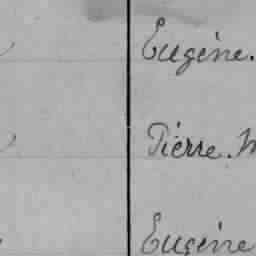 Eugène.
Pierre.
Eugène